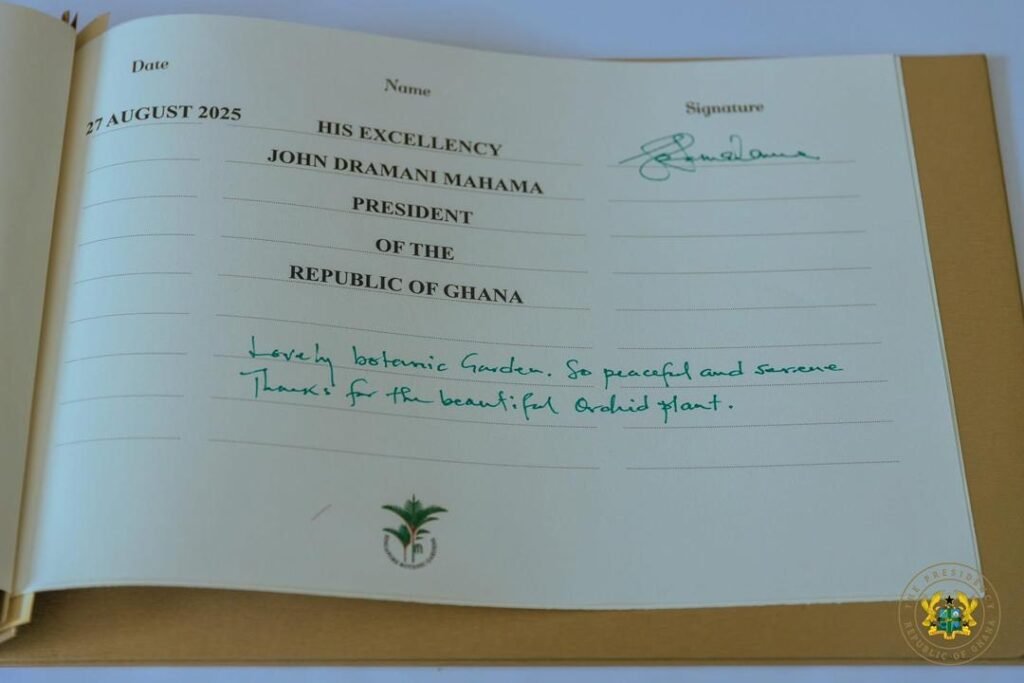 Date Name Signature
27 AUGUST 2025
HIS EXCELLENCY
JOHN DRAMANI MAHAMA
PRESIDENT
OF THE
REPUBLIC OF GHANA
Lovely botanic Garden. So peaceful and serene
Thanks for the beautiful Orchid plant.
THE PRESIDENCY
REPUBLIC OF GHANA